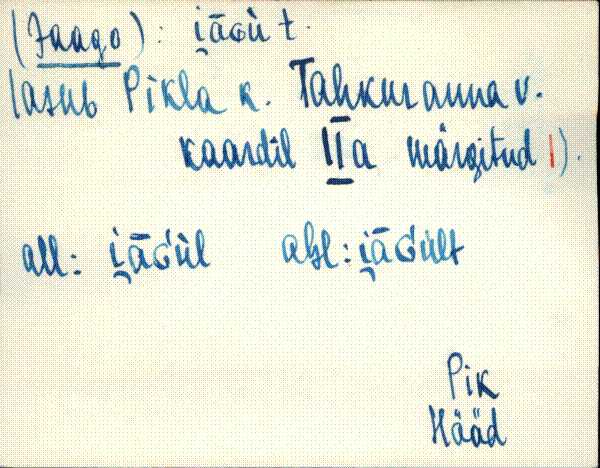 (Jaago): i̯āɢù t.
lasub Pikla k. Tahkuranna v.
kaardil IIa märgitud 1).
all: i̯āɢùl abl: i̯āɢùlt
Pik
Hääd